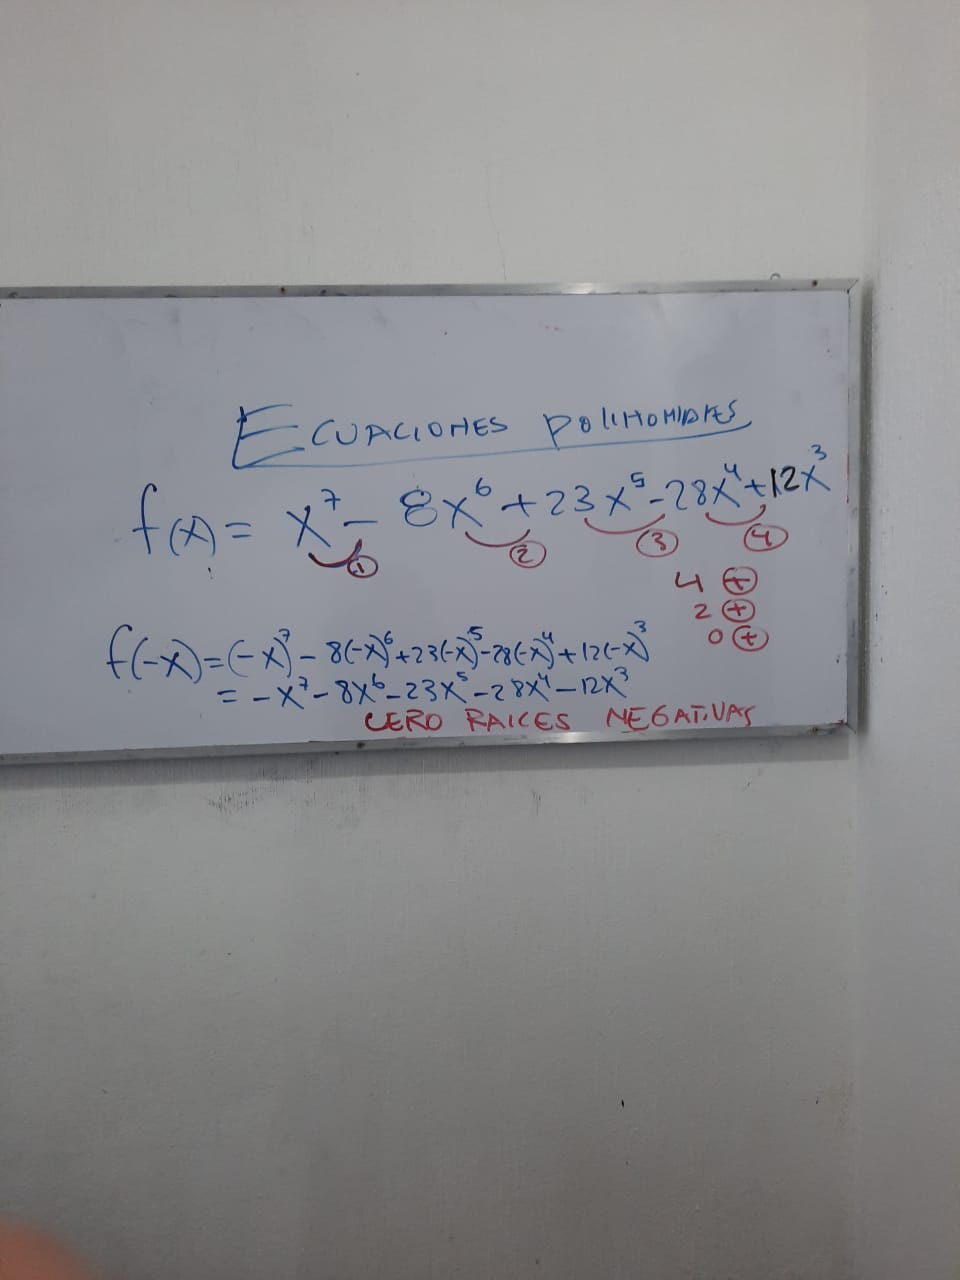 ECUACIONES POLINOMIALES
f(x) = x⁷ - 8x⁶ + 23x⁵ - 28x⁴ + 12x³
① ② ③ ④
4 ⊕
2 ⊕
0 ⊕
f(-x) = (-x)⁷ - 8(-x)⁶ + 23(-x)⁵ - 28(-x)⁴ + 12(-x)³
= -x⁷ - 8x⁶ - 23x⁵ - 28x⁴ - 12x³
CERO RAICES NEGATIVAS